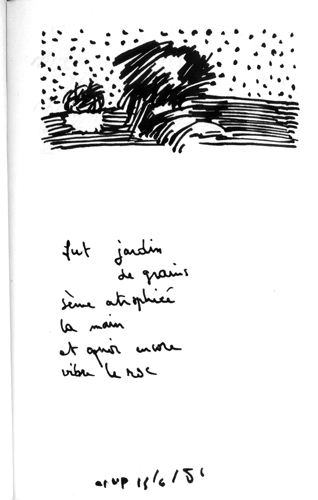 fut jardin
de grains
sème atrophiée
la main
et quoi encore
vibre le roc